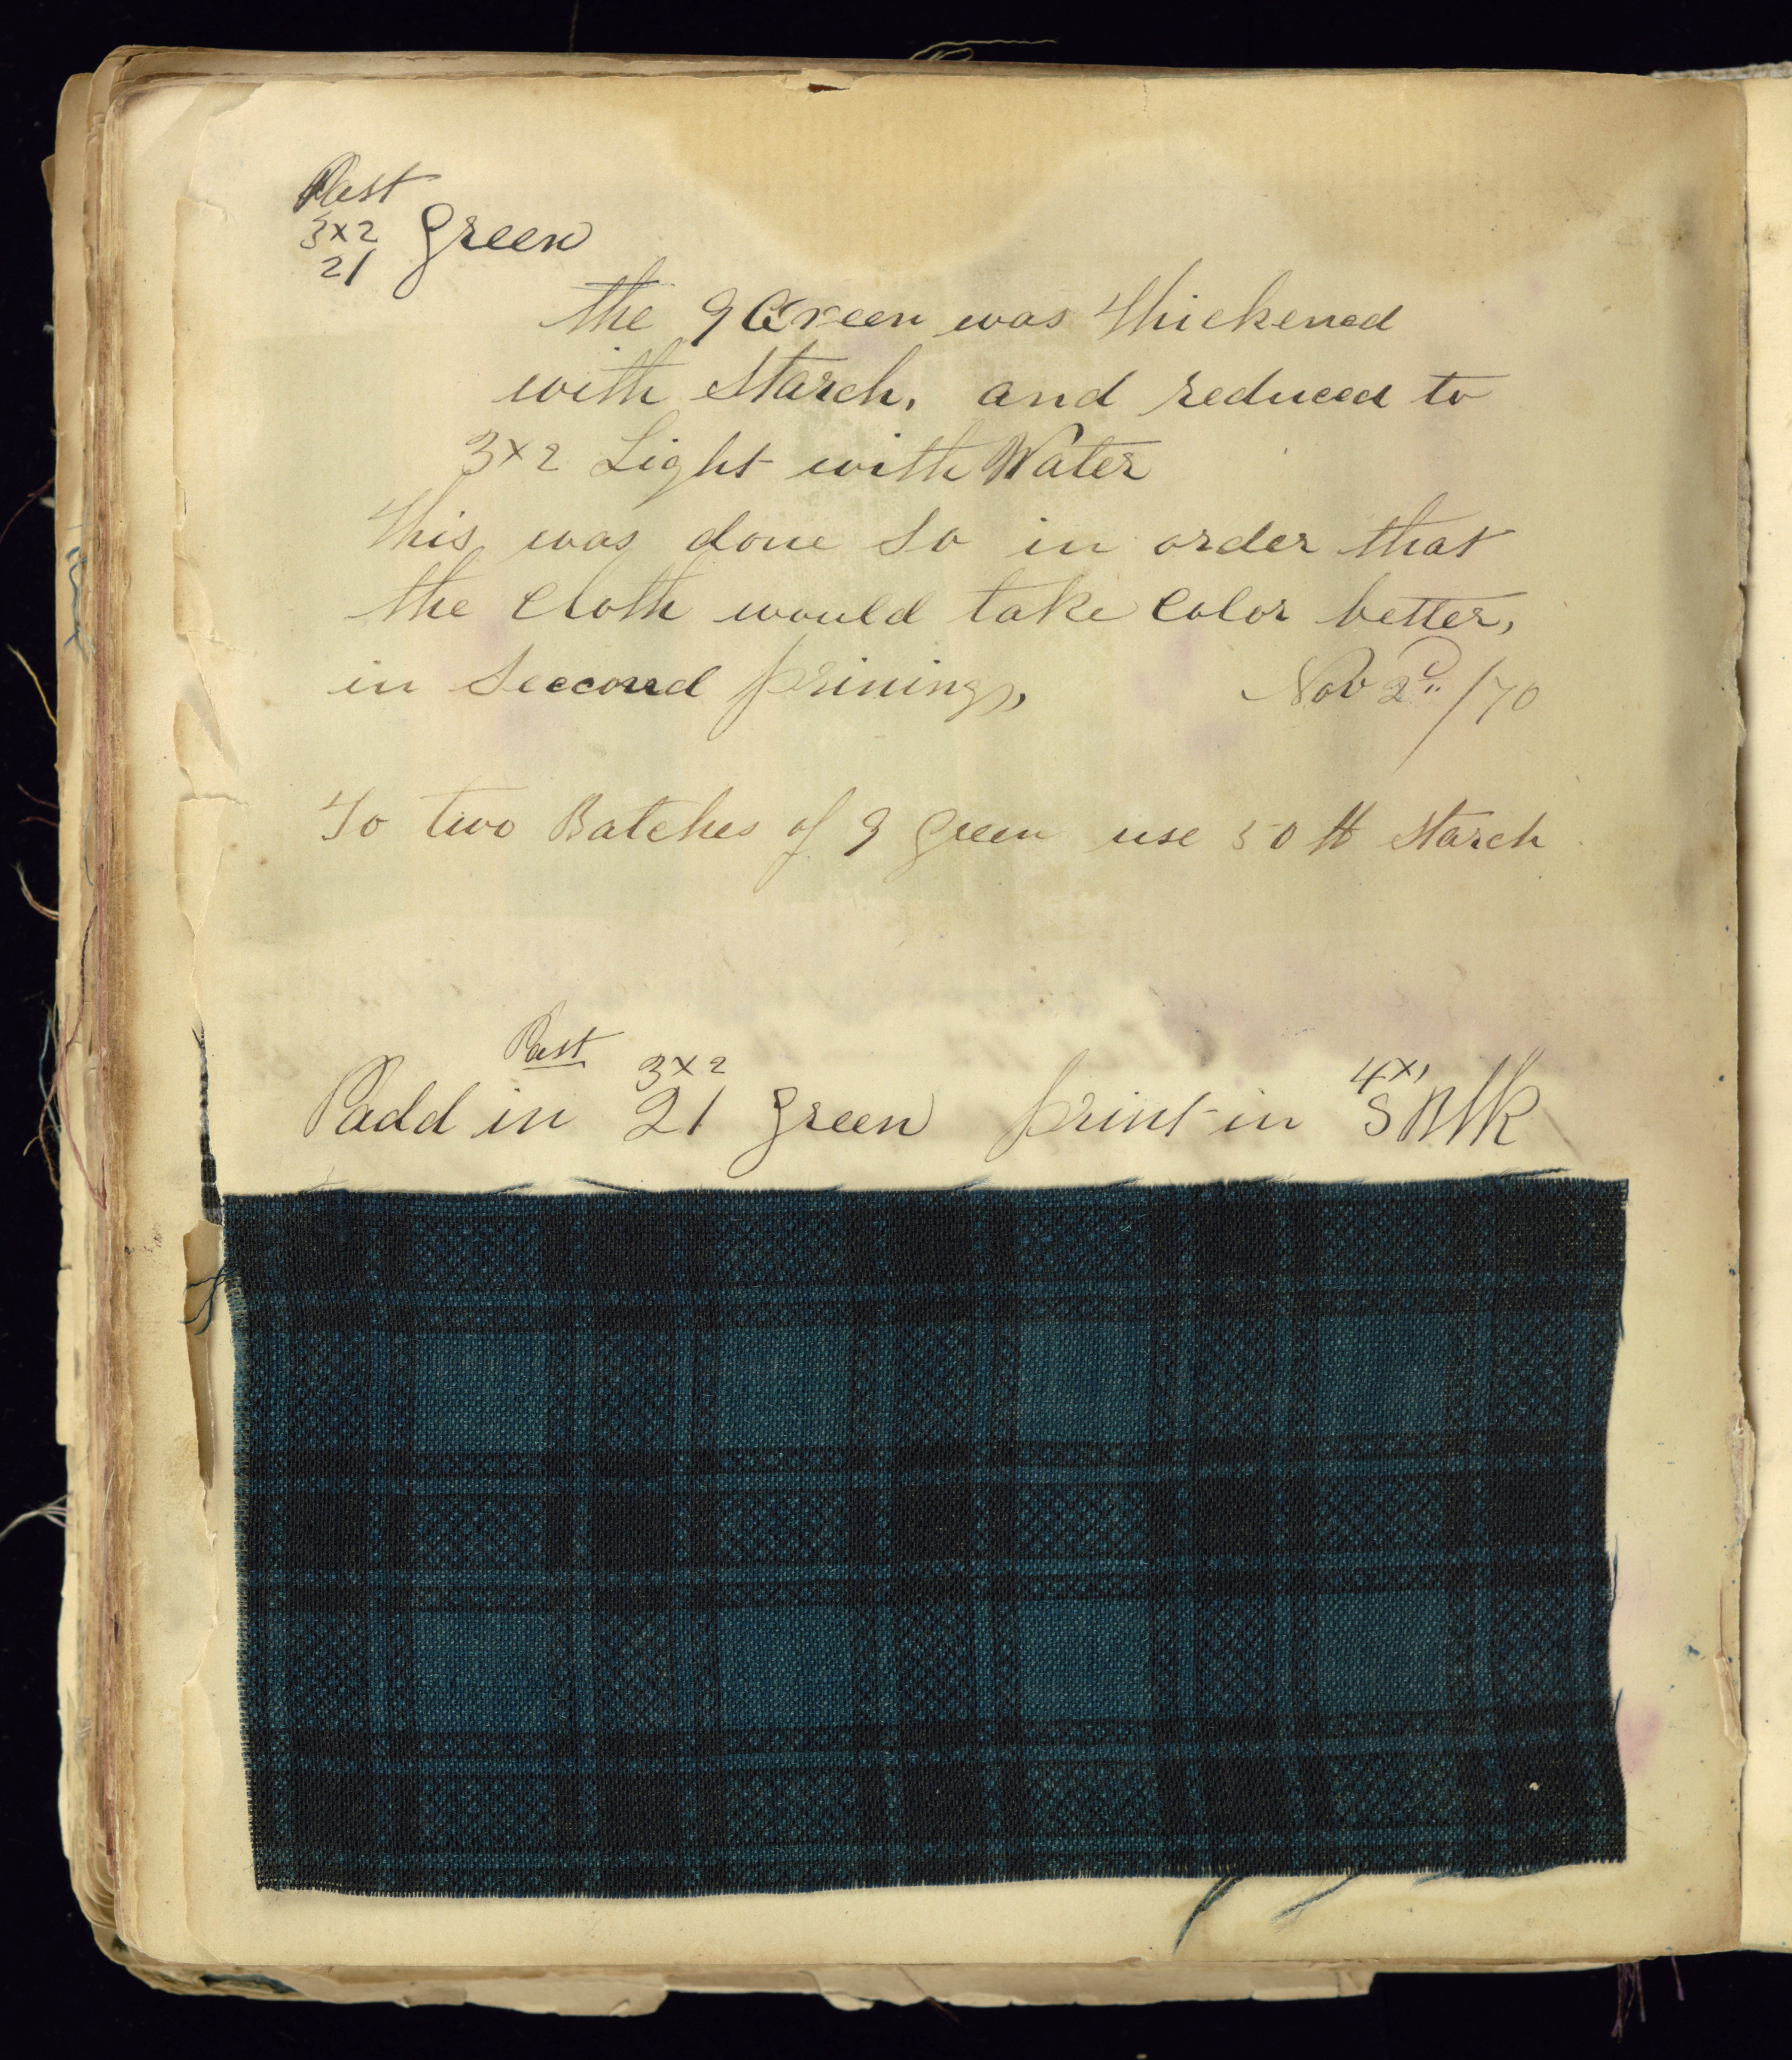 Past
3x2
21 Green
the 9 Green was thickened
with Starch, and reduced to
3x2 Light with Water
This was done So in order that
the Cloth would take Color better,
in Seccond prining,
Nov 2d /70
To two Batches of 9 green use 50 lb Starch
Past
3x2 4x1
Padd in 21 Green print in S Blk